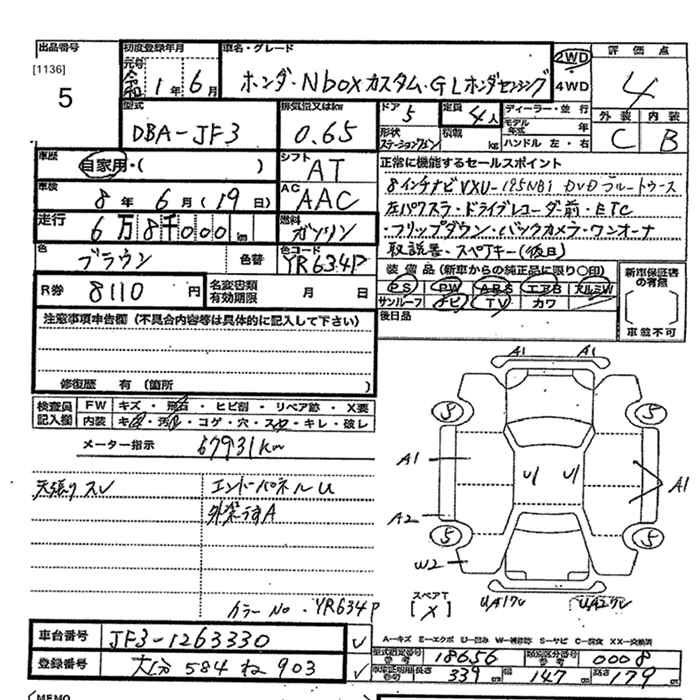 出品番号 初度登録年月 車名・グレード 評価点
[1136]
5
元号 令和 1年 6月
ホンダ・Nboxカスタム・GLホンダセンシング
2WD
4WD
4
型式 排気量又はkw ドア 5 定員 4人 ディーラー・並行 外装 内装
DBA-JF3 0.65
形状 ステーションワゴン 積載 kg モデル年式 年
ハンドル 左・右
C B
車歴 自家用・( ) シフト AT
正常に機能するセールスポイント
車検 8年 6月 (19日) AC AAC
8インチナビVXU-195NBi DVDブルートゥース
左パワスラ・ドライブレコーダー前・ETC
走行 6万8千000km 燃料 ガソリン
・フリップダウン・バックカメラ・ワンオーナ
色 ブラウン 色替 色コード YR634P
取説書・スペアキー(後日)
装備品(新車からの純正品に限り〇印)
新車保証書の有無
R券 8110円 名変書類有効期限 月 日
PS PW ABS エアB アルミW
サンルーフ ナビ TV カワ
後日品
車載不可
注意事項申告欄(不具合内容等は具体的に記入して下さい)
修復歴 有(箇所 )
検査員記入欄 FW キズ・飛石・ヒビ割・リペア跡・X要
内装 キズ・汚れ・コゲ・穴・スレ・キレ・破レ
メーター指示 67931km
天張りスレ
エンドーパネルU
外装うすA
カラーNo・YR634P
A1 A1
5 5
A1
U1 U1
A1
A2
5 5
W2
スペアT
[X]
UA1ワレ UA2ワレ
車台番号 JF3-1263330
A-キズ E-エクボ U-凹み W-補修跡 S-サビ C-腐食 XX-交換済
型式指定番号 18656 類別区分番号 0008
登録番号 大分 584 ね 903
長さ 339 幅 147 高さ 179
MEMO